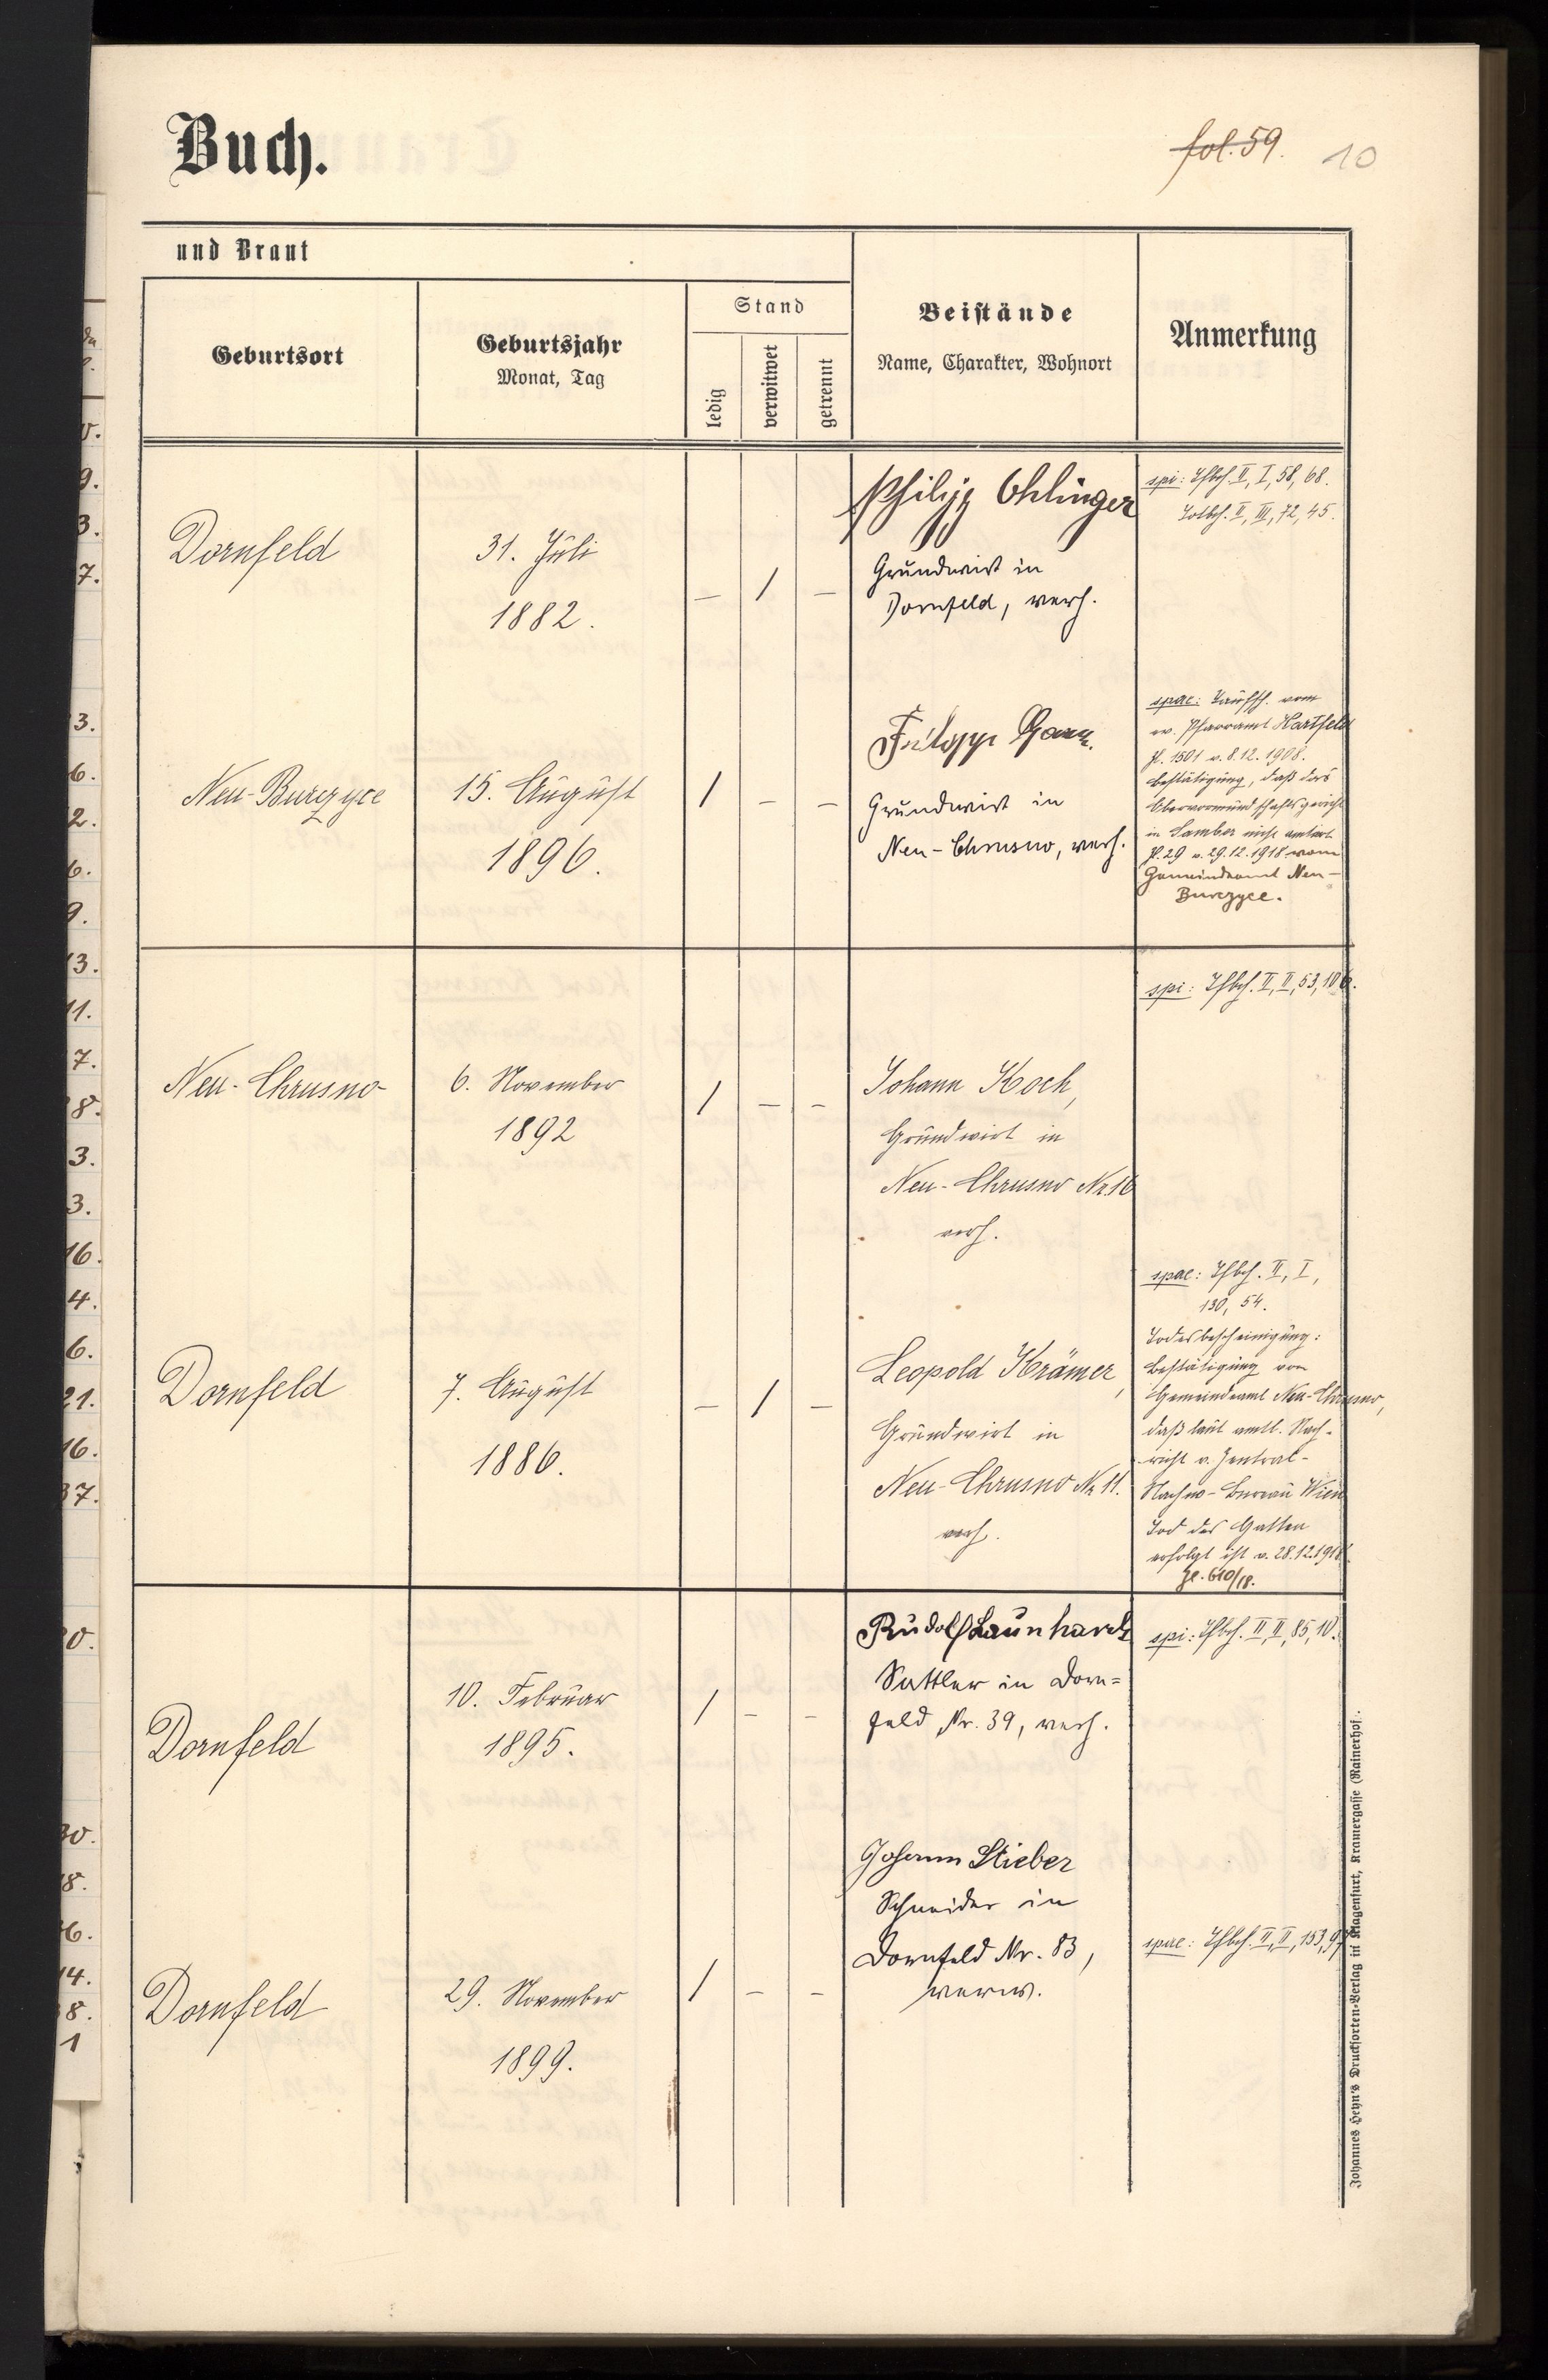 Buch.
fol. 59. 10
und Braut
Geburtsort
Geburtsjahr
Monat, Tag
Stand
ledig
verwitwet
getrennt
Beistände
Name, Charakter, Wohnort
Anmerkung
Dornfeld
31. Juli
1882.
– / –
Philipp Ohlinger
Grundwirt in
Dornfeld, verh.
spi: Tfbch. II, I, 58, 68.
Totbch. II, III, 72, 45.
Neu-Burczyce
15. August
1896.
/ – –
Grundwirt in
Neu-Chrusno, verh.
spae: Taufsch. vom
ev. Pfarramt Hartfeld
Zl. 1501 v. 8.12.1908.
Bestätigung, daß das
Obervormundschaftsgericht
in Sambor nicht amtiert
Zl. 29 v. 29.12.1918 vom
Gemeindeamt Neu-
Burczyce.
Neu-Chrusno
6. November
1892
/ – –
Johann Koch,
Grundwirt in
Neu-Chrusno Nr. 16
verh.
spi: Tfbch. II, II, 53, 106.
Dornfeld
7. August
1886.
– / –
Leopold Krämer,
Grundwirt in
Neu-Chrusno Nr. 11.
verh.
spae: Tfbch. II, I,
130, 54.
Todesbescheinigung:
Bestätigung vom
Gemeindeamt Neu-Chrusno,
daß laut amtl. Nach-
richt v. Zentral-
Nachw-Bureau Wien
Tod des Gatten
erfolgt ist v. 28.12.1918.
Zl. 610/18.
Dornfeld
10. Februar
1895.
/ – –
Rudolf Launhardt
Sattler in Dorn=
feld Nr. 39, verh.
spi: Tfbch. II, II, 85, 10.
Dornfeld
29. November
1899.
/ – –
Johann Stieber
Schneider in
Dornfeld Nr. 83,
verw.
spae: Tfbch. II, II, 153, 97
Johannes Heyn's Drucksorten-Verlag in Klagenfurt, Kramergasse (Rainerhof).